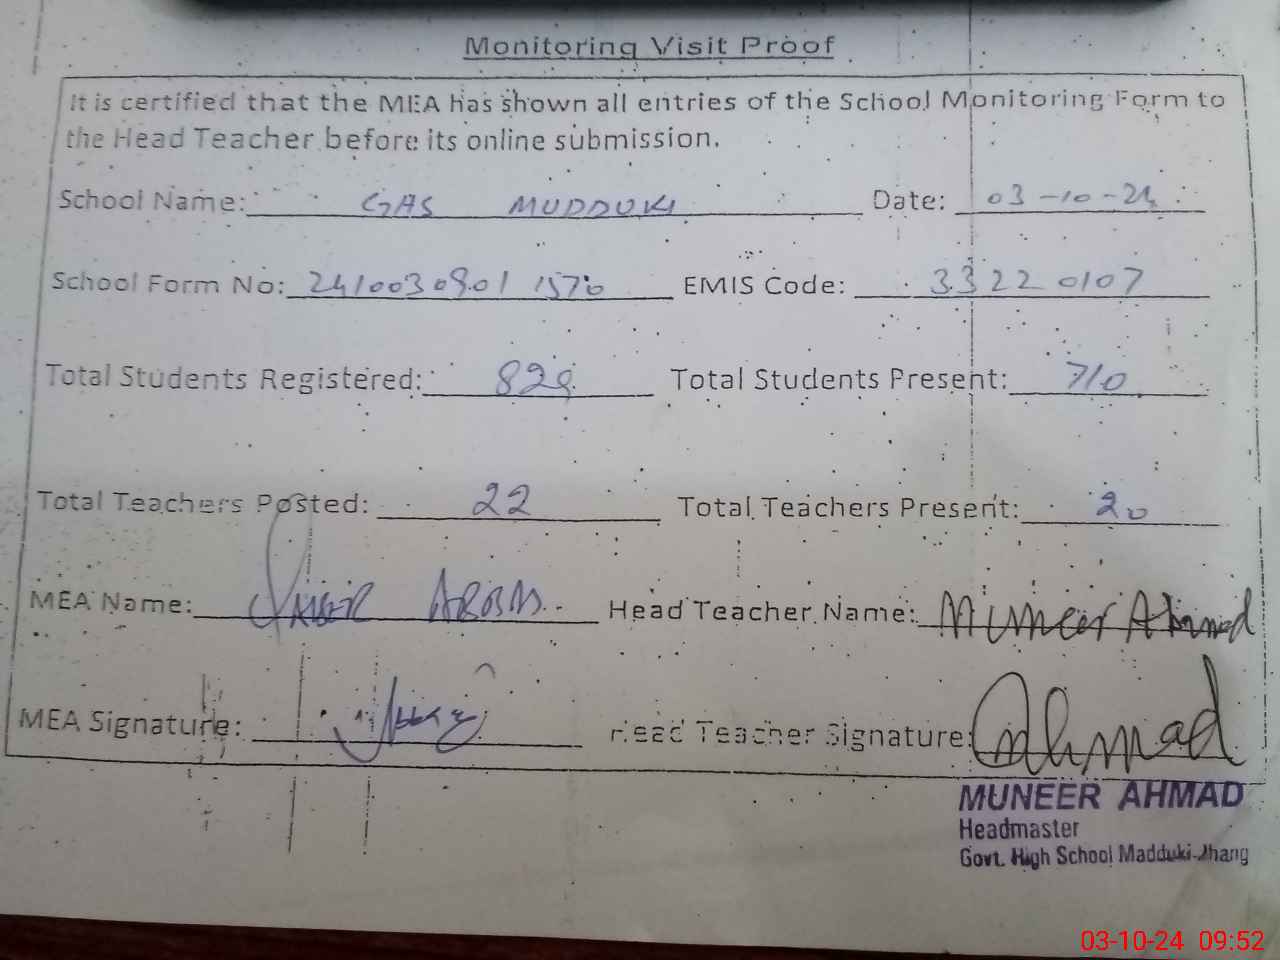 Monitoring Visit Proof
It is certified that the MEA has shown all entries of the School Monitoring Form to
the Head Teacher before its online submission.
School Name: GHS MUDDUKI Date: 03-10-24
School Form No: 24100309011570 EMIS Code: 33220107
Total Students Registered: 828 Total Students Present: 710
Total Teachers Posted: 22 Total Teachers Present: 20
MEA Name: Head Teacher Name: Muneer Ahmad
MEA Signature: Head Teacher Signature: Ahmad
MUNEER AHMAD
Headmaster
Govt. High School Madduki-Jhang
03-10-24 09:52